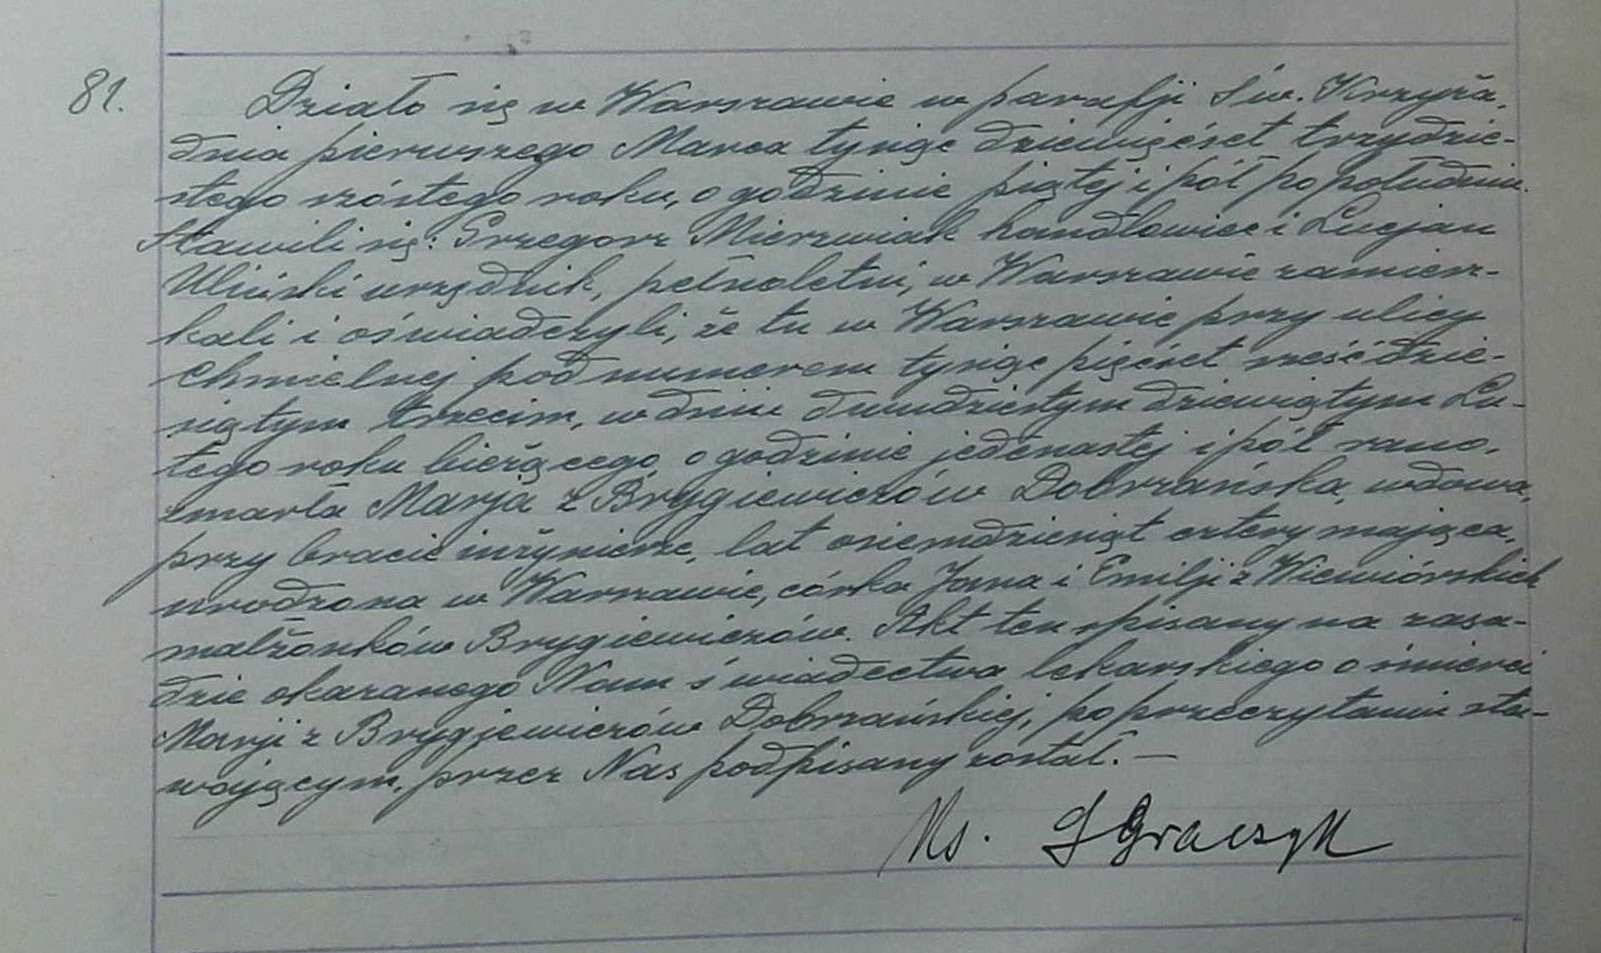 81.
Działo się w Warszawie w parafji Św. Krzyża,
dnia pierwszego Marca tysiąc dziewięćset trzydzie-
stego szóstego roku, o godzinie piątej i pół po południu.
Stawili się: Grzegorz Mierzwiak handlowiec i Lucjan
Uliński urzędnik, pełnoletni, w Warszawie zamiesz-
kali i oświadczyli, że tu w Warszawie przy ulicy
Chmielnej pod numerem tysiąc pięćset sześćdzie-
siątym trzecim, w dniu dwudziestym dziewiątym Lu-
tego roku bieżącego, o godzinie jedenastej i pół rano,
zmarła Marja z Brygiewiczów Dobrzańska, wdowa,
przy bracie inżynierze, lat osiemdziesiąt cztery mająca,
urodzona w Warszawie, córka Jana i Emilji z Wiewiórskich
małżonków Brygiewiczów. Akt ten spisany na zasa-
dzie okazanego Nam świadectwa lekarskiego o śmierci
Marji z Brygiewiczów Dobrzańskiej, po przeczytaniu sta-
wającym, przez Nas podpisany został. —
Ks. S Graczyk